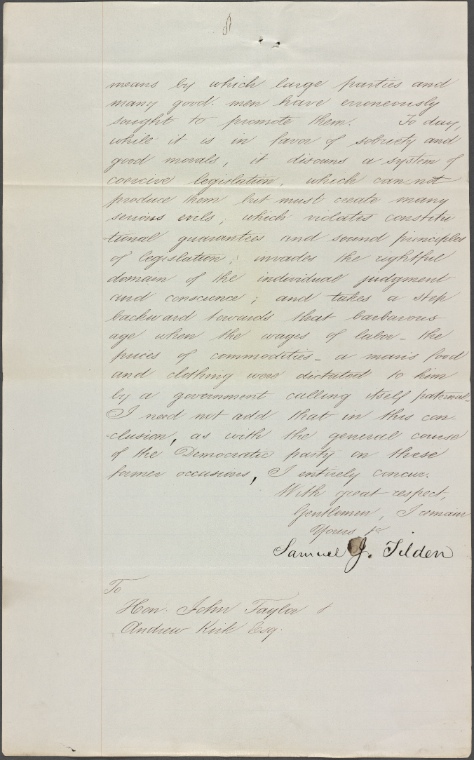 8
means by which large parties and
many good men have erroneously
sought to promote them. To day,
while it is in favor of sobriety and
good morals, it disowns a system of
coercive legislation, which can not
produce them but must create many
serious evils, which violates constitu
tional guarantees and sound principles
of legislation; invades the rightful
domain of the individual judgment
and conscience; and takes a step
backward towards that barbarous
age when the wages of labor – the
prices of commodities – a man's food
and clothing were dictated to him
by a government calling itself paternal.
I need not add that in this con
clusion, as with the general course
of the Democratic party on these
former occasions, I entirely concur.
With great respect,
Gentlemen, I remain
Yours &c
Samuel J. Tilden
To
Hon. John Taylor &
Andrew Kirk Esq.